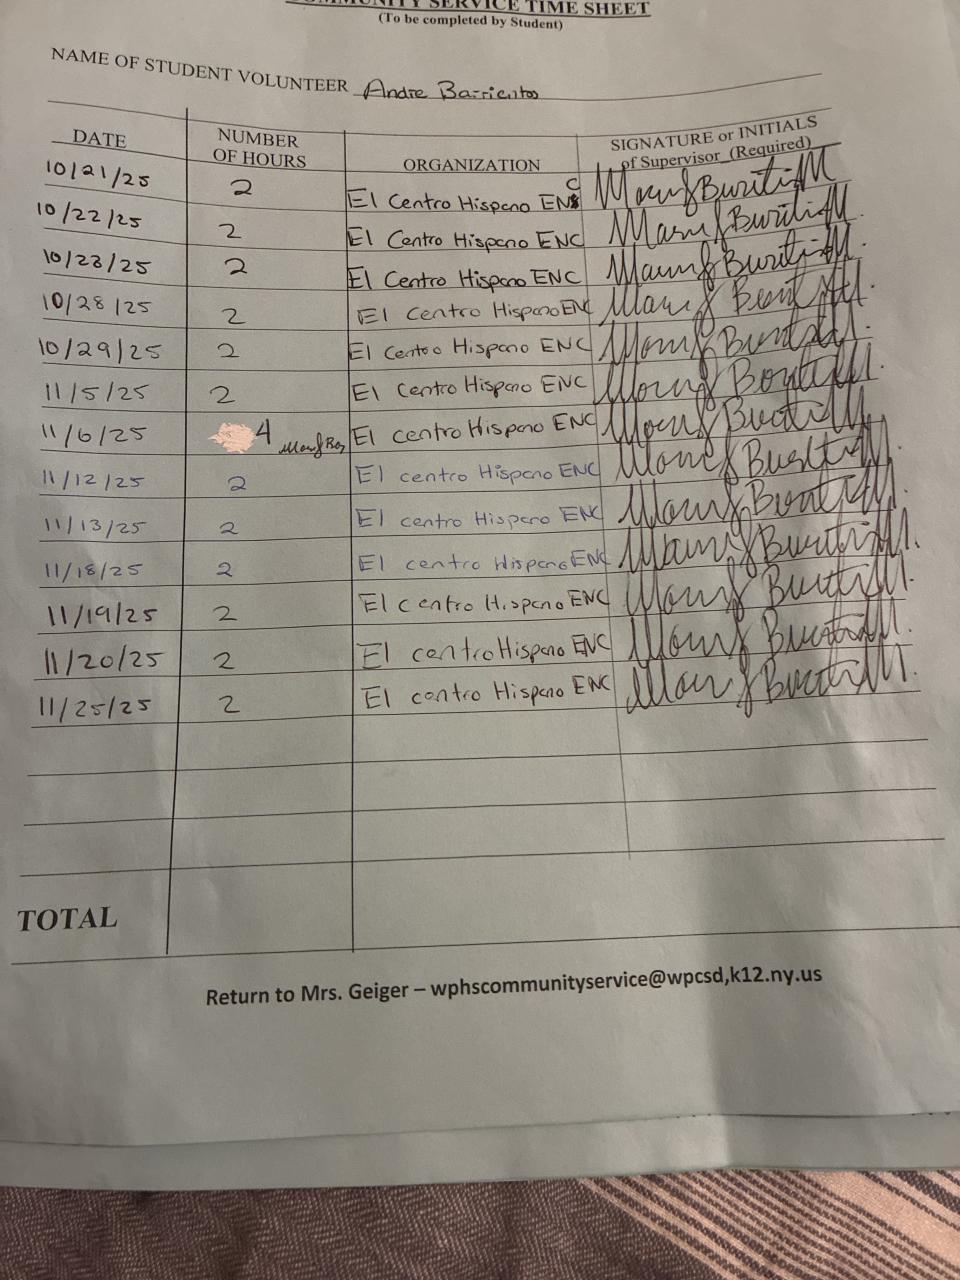 COMMUNITY SERVICE TIME SHEET
(To be completed by Student)
NAME OF STUDENT VOLUNTEER Andre Barrientos
DATE NUMBER OF HOURS ORGANIZATION SIGNATURE or INITIALS of Supervisor (Required)
10/21/25 2 El Centro Hispano ENC
10/22/25 2 El Centro Hispano ENC
10/23/25 2 El Centro Hispano ENC
10/28/25 2 El Centro Hispano ENC
10/29/25 2 El Centro Hispano ENC
11/5/25 2 El Centro Hispano ENC
11/6/25 4 El centro Hispano ENC
11/12/25 2 El centro Hispano ENC
11/13/25 2 El centro Hispano ENC
11/18/25 2 El centro Hispano ENC
11/19/25 2 El centro Hispano ENC
11/20/25 2 El centro Hispano ENC
11/25/25 2 El centro Hispano ENC
TOTAL
Return to Mrs. Geiger – wphscommunityservice@wpcsd,k12.ny.us